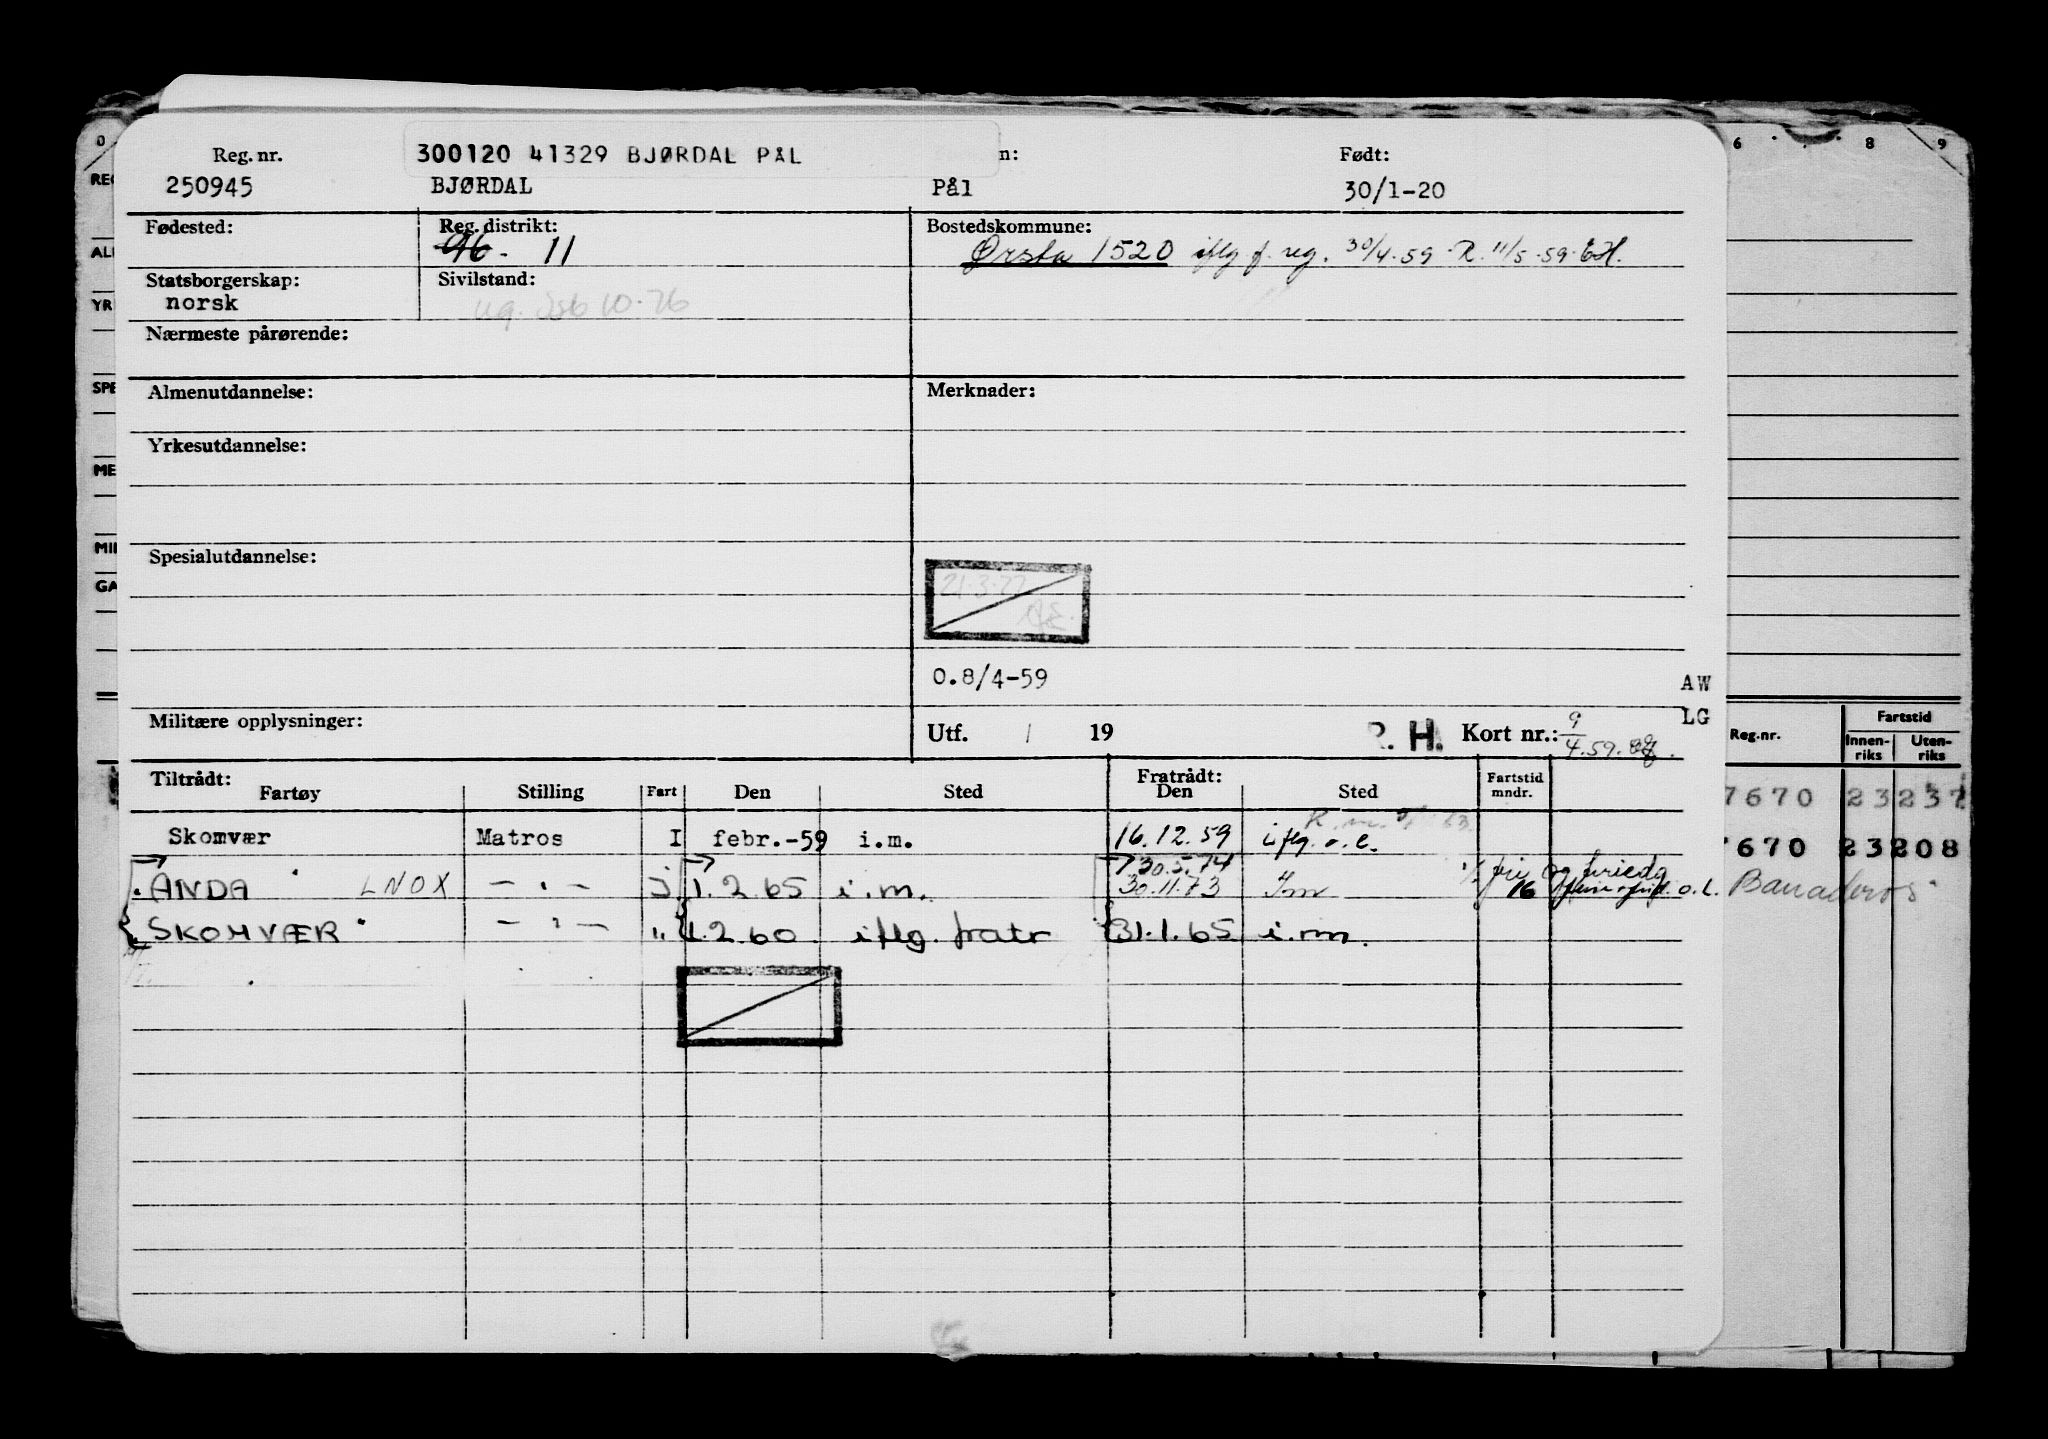 0 6 8 9
Reg. nr. 300120 41329 BJØRDAL PÅL n: Født:
REG 250945 BJØRDAL Pål 30/1-20
Fødested: Reg. distrikt: Bostedskommune:
ALI 96. 11 Ørsta 1520 iflg f. reg. 30/4.59 R. 11/5.59.
Statsborgerskap: Sivilstand:
YR norsk ug. 10.76
Nærmeste pårørende:
SPE Almenutdannelse: Merknader:
Yrkesutdannelse:
ME
MIL Spesialutdannelse:
GA 21.3.77
0.8/4-59 AW
Militære opplysninger: Utf. / 19 R. H. Kort nr.: 9/4.59. LG Reg.nr. Fartstid
Innen-riks Uten-riks
Tiltrådt: Fratrådt:
Fartøy Stilling Fart Den Sted Den Sted Fartstid mndr.
7670 23 237
Skomvær Matros I febr.-59 i.m. 16.12.59 iflg. o.l. 7670 23 208
30.5.74 fri og
ANDA LNOX — " — J 1.2.65 i.m. 30.11.73 Im 16 o.l. Banaderos
SKOMVÆR — " — " 1.2.60 iflg. fratr 31.1.65 i.m.